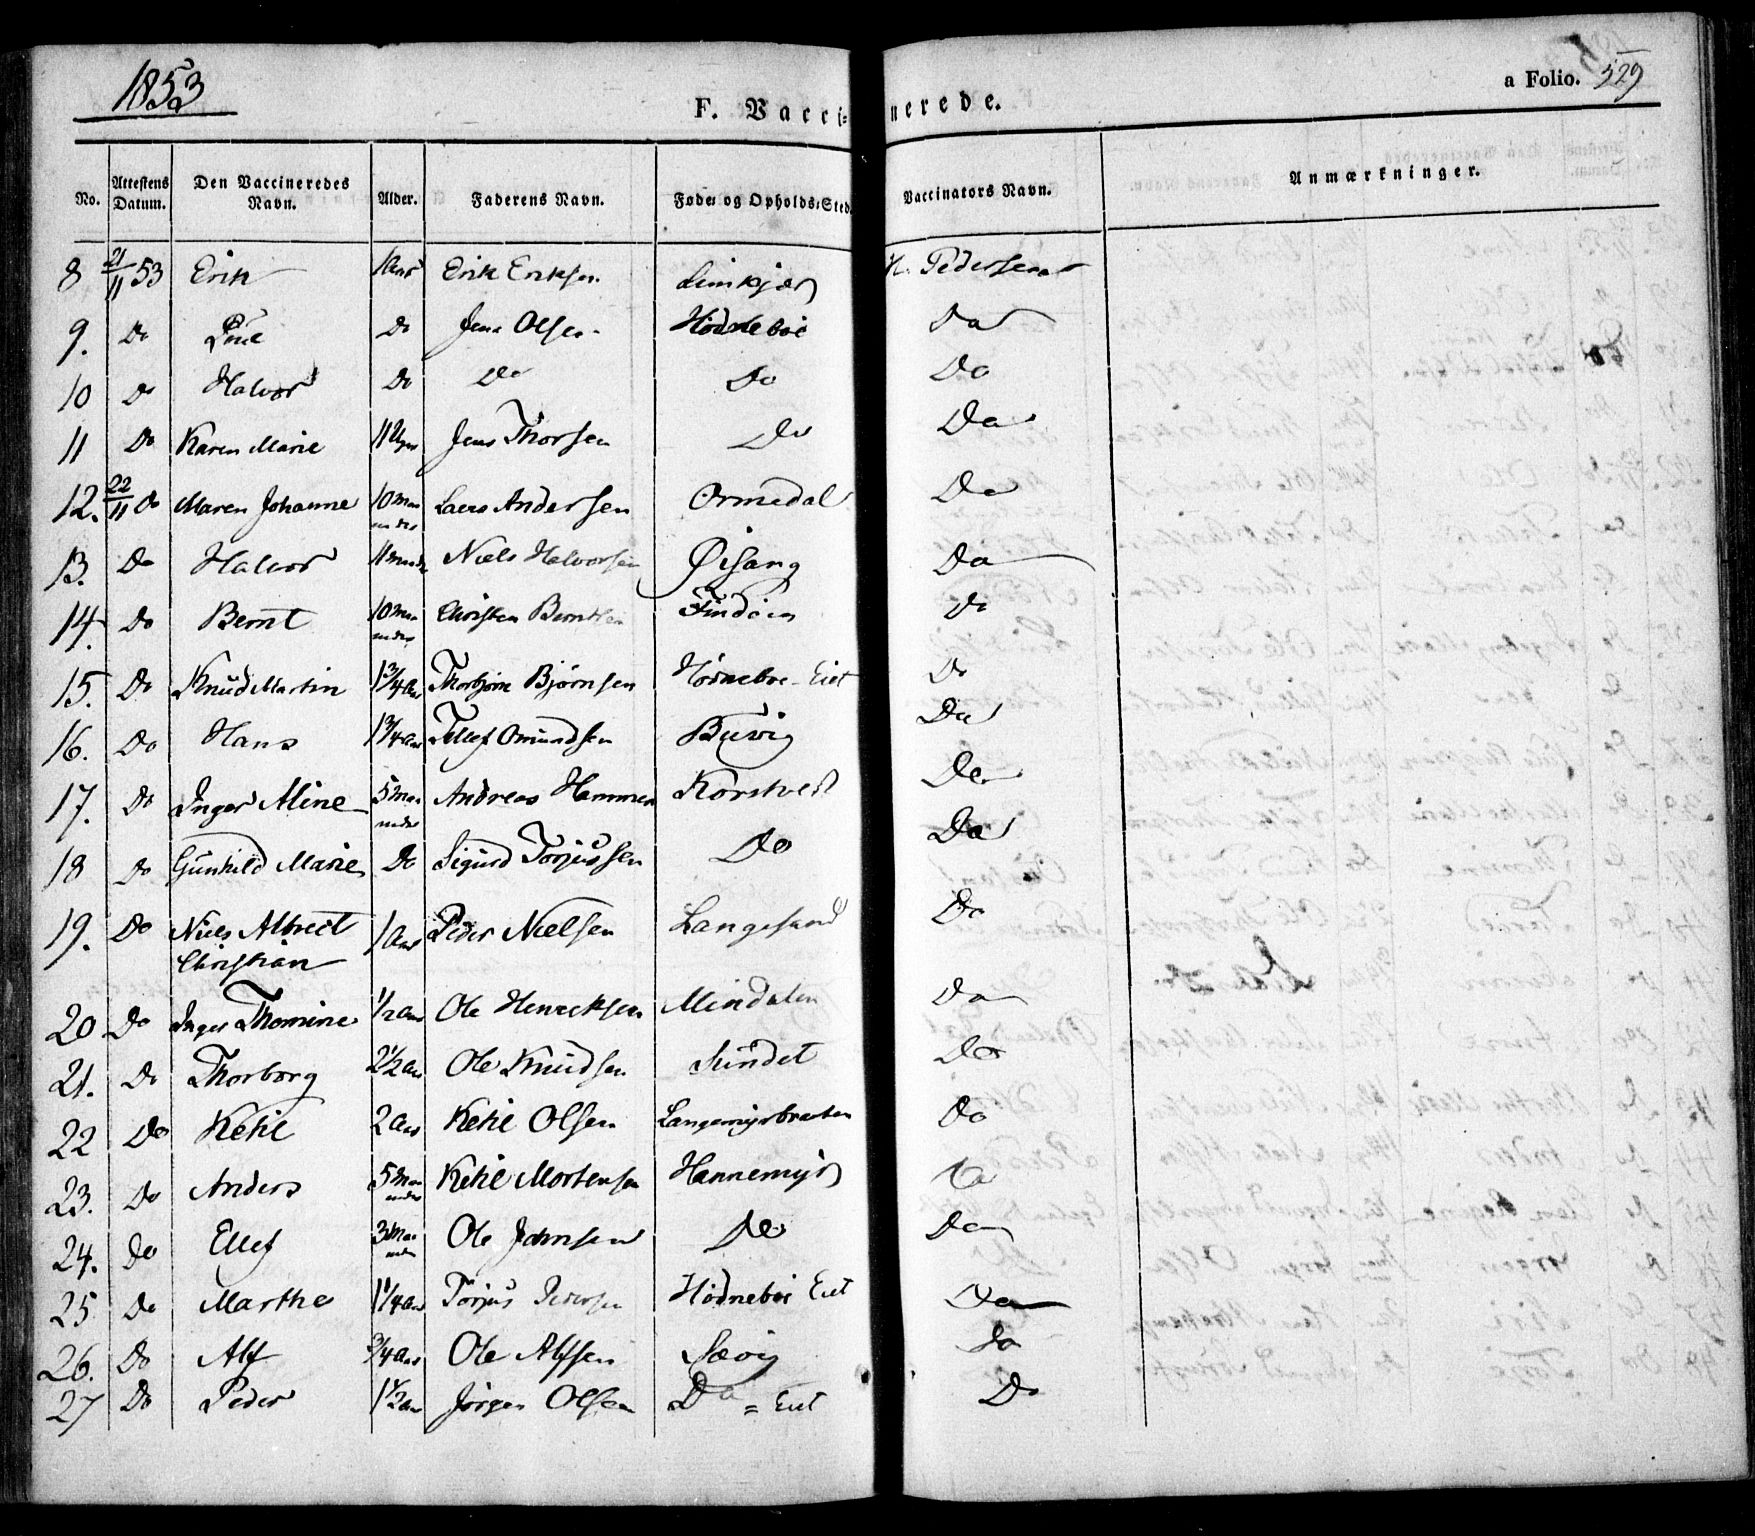 1853
a Folio. 329
F. Vaccinerede.
No. Attestens Datum. Den Vaccineredes Navn. Alder. Faderens Navn. Føde- og Opholds-Sted. Vaccinators Navn. Anmærkninger.
8 21/11 53 Erik 1 aar Erik Eriksen Pedersen
9. Do Do Jens Olsen Hødnebøe Do
10 Do Halvor Do Do Do Do
11 Do Karen Marie 11 Uger Jens Thorsen Do Do
12. 22/11 Do Maren Johanne 10 maaneder Lars Andersen Ormedal Do
13. Do Halvor 11 maaneder Niels Halvorsen Øisang Do
14. Do Bernt 10 maaneder Christen Berntsen Findøen Do
15. Do Knud Martin 1 3/4 aar Thorbjørn Bjørnsen Hødneboe Eiet Do
16. Do Hans 1 3/4 aar Tellef Omundsen Buvig Do
17. Do Inger Aline 5 maaneder Andreas Hammer Korstvedt Do
18 Do Gunhild Marie Do Sigurd Torjussen Do Do
19. Do Niels Albrect Christian 1 aar Peder Nielsen Langesund Do
20 Do Inger Thomine 1/2 aar Ole Henreksen Mindalen Do
21. Do Thorborg 2 1/2 aar Ole Knudsen Sundet Do
22 Do Ketil 2 aar Ketil Olsen Langemyrbraaten Do
23. Do Anders 5 maaneder Ketil Mortensen Hannemyr Do
24. Do Ellef 3 maaneder Ole Johnsen Do Do
25 Do Marthe 1 1/4 aar Torjus Pedersen Hødnebøe Eiet Do
26. Do Alf 3/4 aar Ole Alfsen Sævig Do
27 Do Peder 1 1/2 aar Jørgen Olsen Do = Eiet Do